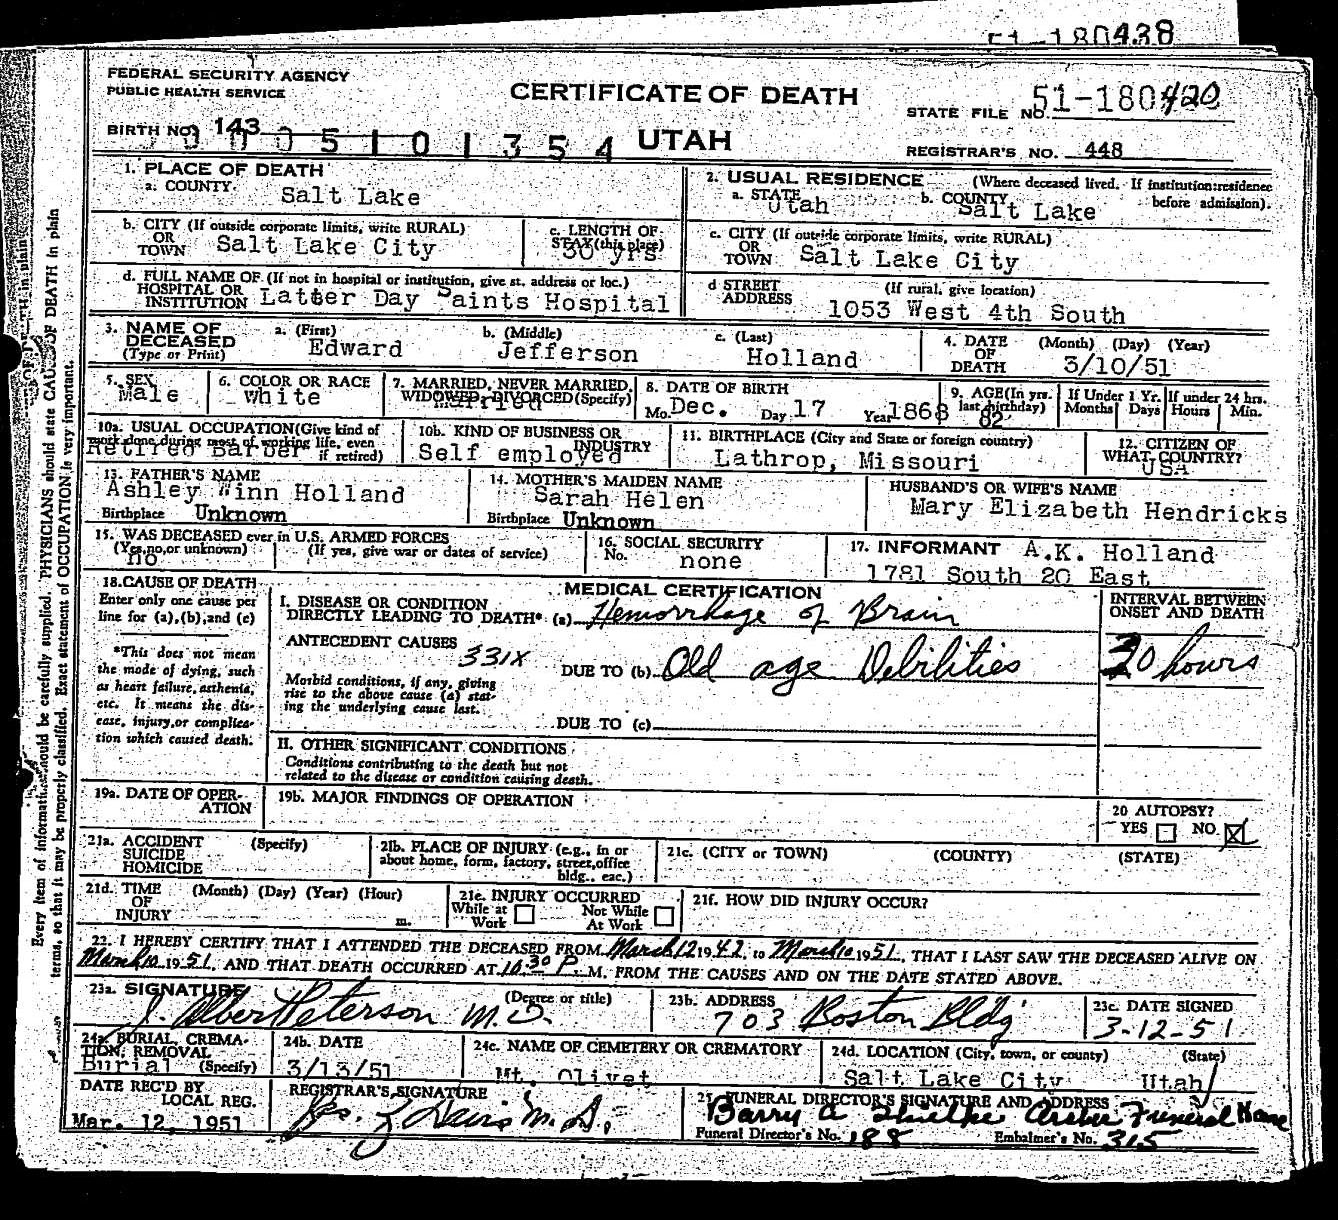 438
FEDERAL SECURITY AGENCY
PUBLIC HEALTH SERVICE
CERTIFICATE OF DEATH
UTAH
STATE FILE NO. 51-180420
BIRTH NO. 143
0005101354
REGISTRAR'S NO. 448
1. PLACE OF DEATH
a. COUNTY
Salt Lake
2. USUAL RESIDENCE (Where deceased lived. If institution:residence before admission).
a. STATE Utah
b. COUNTY Salt Lake
b. CITY (If outside corporate limits, write RURAL)
OR
TOWN Salt Lake City
c. LENGTH OF
STAY (this place)
30 yrs
c. CITY (If outside corporate limits, write RURAL)
OR
TOWN Salt Lake City
d. FULL NAME OF (If not in hospital or institution, give st. address or loc.)
HOSPITAL OR
INSTITUTION Latter Day Saints Hospital
d STREET
ADDRESS
(If rural, give location)
1053 West 4th South
3. NAME OF
DECEASED
(Type or Print)
a. (First)
Edward
b. (Middle)
Jefferson
c. (Last)
Holland
4. DATE
OF
DEATH
(Month) (Day) (Year)
3/10/51
5. SEX
Male
6. COLOR OR RACE
White
7. MARRIED, NEVER MARRIED,
WIDOWED, DIVORCED (Specify)
Married
8. DATE OF BIRTH
Mo. Dec. Day 17 Year 1868
9. AGE (In yrs.
last birthday)
82
If Under 1 Yr.
Months Days
If under 24 hrs.
Hours Min.
10a. USUAL OCCUPATION (Give kind of
work done during most of working life, even
if retired)
Retired Barber
10b. KIND OF BUSINESS OR
INDUSTRY
Self employed
11. BIRTHPLACE (City and State or foreign country)
Lathrop, Missouri
12. CITIZEN OF
WHAT COUNTRY?
USA
13. FATHER'S NAME
Ashley Winn Holland
Birthplace Unknown
14. MOTHER'S MAIDEN NAME
Sarah Helen
Birthplace Unknown
HUSBAND'S OR WIFE'S NAME
Mary Elizabeth Hendricks
15. WAS DECEASED ever in U.S. ARMED FORCES
(Yes, no, or unknown)
(If yes, give war or dates of service)
no
16. SOCIAL SECURITY
No. none
17. INFORMANT A.K. Holland
1781 South 20 East
18. CAUSE OF DEATH
Enter only one cause per
line for (a), (b), and (c)
*This does not mean
the mode of dying, such
as heart failure, asthenia,
etc. It means the dis-
ease, injury, or complica-
tion which caused death.
MEDICAL CERTIFICATION
I. DISEASE OR CONDITION
DIRECTLY LEADING TO DEATH* (a) Hemorrhage of Brain
ANTECEDENT CAUSES
331X
DUE TO (b) Old age Debilities
Morbid conditions, if any, giving
rise to the above cause (a) stat-
ing the underlying cause last.
DUE TO (c)
INTERVAL BETWEEN
ONSET AND DEATH
30 hours
II. OTHER SIGNIFICANT CONDITIONS
Conditions contributing to the death but not
related to the disease or condition causing death.
19a. DATE OF OPER-
ATION
19b. MAJOR FINDINGS OF OPERATION
20 AUTOPSY?
YES NO
21a. ACCIDENT (Specify)
SUICIDE
HOMICIDE
21b. PLACE OF INJURY (e.g., in or
about home, form, factory, street, office
bldg., eac.)
21c. (CITY or TOWN) (COUNTY) (STATE)
21d. TIME (Month) (Day) (Year) (Hour)
OF
INJURY m.
21e. INJURY OCCURRED
While at
Work
Not While
At Work
21f. HOW DID INJURY OCCUR?
22. I HEREBY CERTIFY THAT I ATTENDED THE DECEASED FROM March 12 1942, to March 10 1951, THAT I LAST SAW THE DECEASED ALIVE ON
March 10 1951, AND THAT DEATH OCCURRED AT 10:30 P. M. FROM THE CAUSES AND ON THE DATE STATED ABOVE.
23a. SIGNATURE (Degree or title)
J. Albert Peterson M.D.
23b. ADDRESS
703 Boston Bldg
23c. DATE SIGNED
3-12-51
24a. BURIAL, CREMA-
TION, REMOVAL
(Specify)
Burial
24b. DATE
3/13/51
24c. NAME OF CEMETERY OR CREMATORY
Mt. Olivet
24d. LOCATION (City, town, or county) (State)
Salt Lake City Utah
DATE REC'D BY
LOCAL REG.
Mar. 12, 1951
REGISTRAR'S SIGNATURE
M.D.
25. FUNERAL DIRECTOR'S SIGNATURE AND ADDRESS
Funeral Home
Funeral Director's No. 188
Embalmer's No. 315
Every item of information should be carefully supplied. PHYSICIANS should state CAUSE OF DEATH in plain
terms, so that it may be properly classified. Exact statement of OCCUPATION is very important.